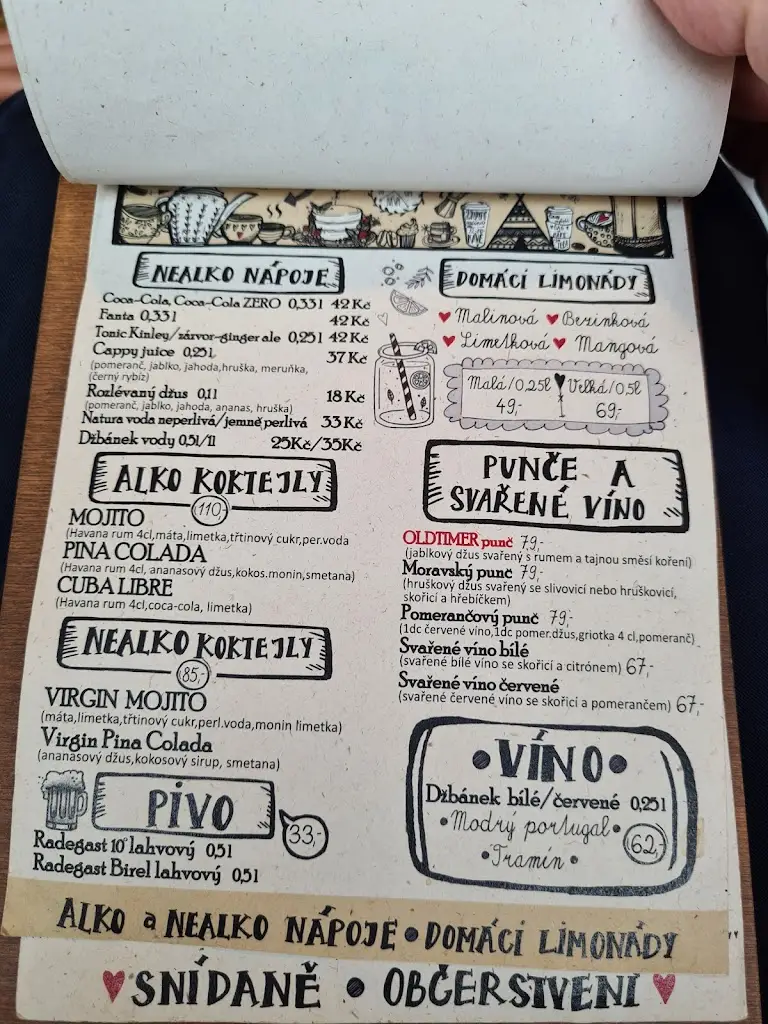 NEALKO NÁPOJE
Coca-Cola, Coca-Cola ZERO 0,33l 42 Kč
Fanta 0,33l 42 Kč
Tonic Kinley/zárvor-ginger ale 0,25l 42 Kč
Cappy juice 0,25l 37 Kč
(pomeranč, jablko, jahoda,hruška, meruňka,
(černý rybíz)
Rozlévaný džus 0,1l 18 Kč
(pomeranč, jablko, jahoda, ananas, hruška)
Natura voda neperlivá/jemně perlivá 33 Kč
Džbánek vody 0,5l/1l 25Kč/35Kč
ALKO KOKTEJLY
110,-
MOJITO
(Havana rum 4cl,máta,limetka,třtinový cukr,per.voda
PINA COLADA
(Havana rum 4cl, ananasový džus,kokos.monin,smetana)
CUBA LIBRE
(Havana rum 4cl,coca-cola, limetka)
NEALKO KOKTEJLY
85,-
VIRGIN MOJITO
(máta,limetka,třtinový cukr,perl.voda,monin limetka)
Virgin Pina Colada
(ananasový džus,kokosový sirup, smetana)
PIVO
33,-
Radegast 10° lahvový 0,5l
Radegast Birel lahvový 0,5l
DOMÁCÍ LIMONÁDY
Malinová Bezinková
Limetková Mangová
Malá/0,25l Velká/0,5l
49,- 69,-
PUNČE A
SVAŘENÉ VÍNO
OLDTIMER punč 79,-
(jablkový džus svařený s rumem a tajnou směsí koření)
Moravský punč 79,-
(hruškový džus svařený se slivovicí nebo hruškovicí,
skořicí a hřebíčkem)
Pomerančový punč 79,-
(1dc červené víno,1dc pomer.džus,griotka 4 cl,pomeranč)
Svařené víno bílé
(svařené bílé víno se skořicí a citrónem) 67,-
Svařené víno červené
(svařené červené víno se skořicí a pomerančem) 67,-
VÍNO
Džbánek bílé/červené 0,25l
Modrý portugal
Tramín
62,-
ALKO a NEALKO NÁPOJE • DOMÁCÍ LIMONÁDY
SNÍDANĚ • OBČERSTVENÍ